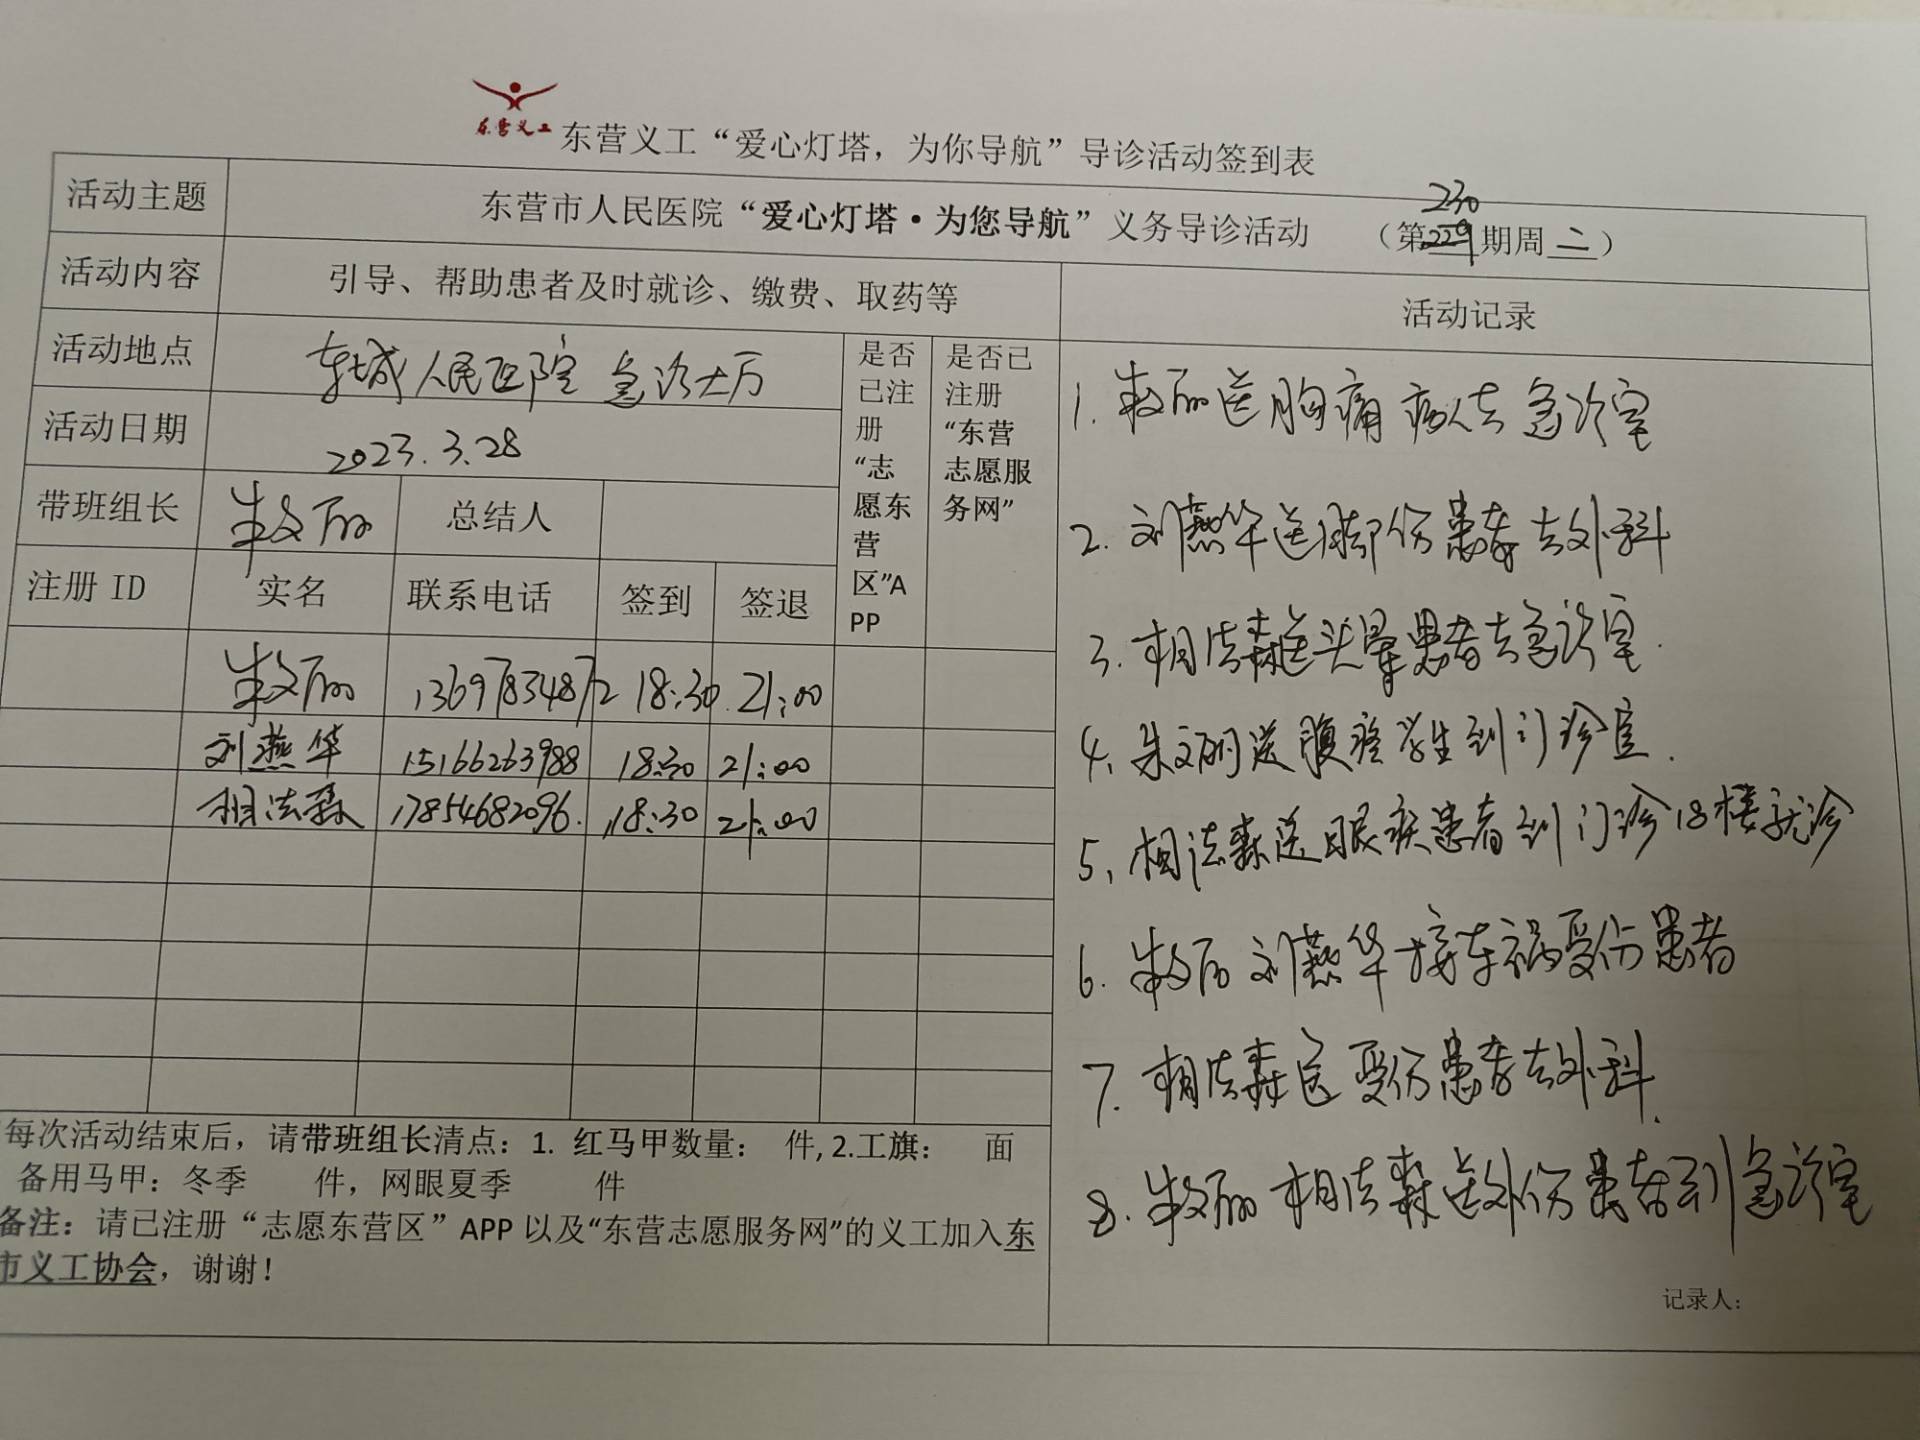 东营义工
东营义工“爱心灯塔，为你导航”导诊活动签到表
活动主题
东营市人民医院“爱心灯塔·为您导航”义务导诊活动
230
（第229期周二）
活动内容
引导、帮助患者及时就诊、缴费、取药等
活动记录
活动地点
东城人民医院 急诊大厅
是否
已注
册
“志
愿东
营
区”A
PP
是否已
注册
“东营
志愿服
务网”
活动日期
2023.3.28
带班组长
朱文丽
总结人
注册 ID
实名
联系电话
签到
签退
朱文丽 13697834872 18:30 21:00
刘燕华 15166263988 18:30 21:00
相法森 17854682096. 18:30 21:00
1. 朱文丽送胸痛病人去急诊室
2. 刘燕华送脚伤患者去外科
3. 相法森送头晕患者去急诊室.
4. 朱文丽送腹疼学生到门诊室.
5. 相法森送眼疾患者到门诊18楼就诊
6. 朱文丽 刘燕华接车祸受伤患者
7. 相法森送受伤患者去外科.
8. 朱文丽 相法森送外伤患者到急诊室
记录人：
每次活动结束后，请带班组长清点：1. 红马甲数量： 件, 2.工旗： 面
备用马甲：冬季 件，网眼夏季 件
备注：请已注册“志愿东营区”APP 以及“东营志愿服务网”的义工加入东
市义工协会，谢谢！